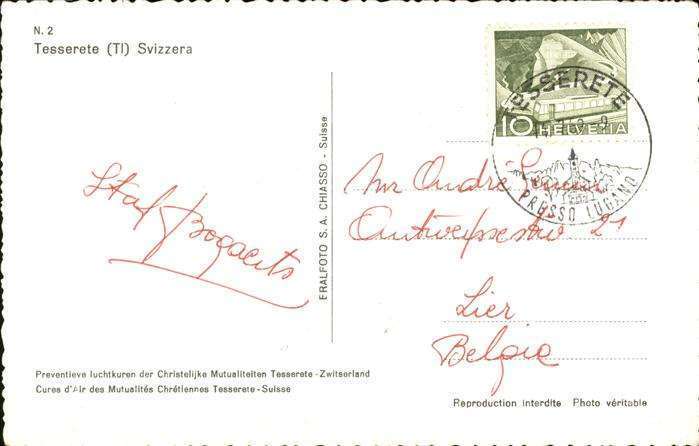 N. 2
Tesserete (TI) Svizzera
10 HELVETIA
TESSERETE
PRESSO LUGANO
ERALFOTO S. A. CHIASSO - Suisse
Staf Bogaerts
Mr André
Antwerpsestw 21
Lier
Belgie
Preventieve luchtkuren der Christelijke Mutualiteiten Tesserete - Zwitserland
Cures d'Air des Mutualités Chrétiennes Tesserete - Suisse
Reproduction interdite Photo véritable